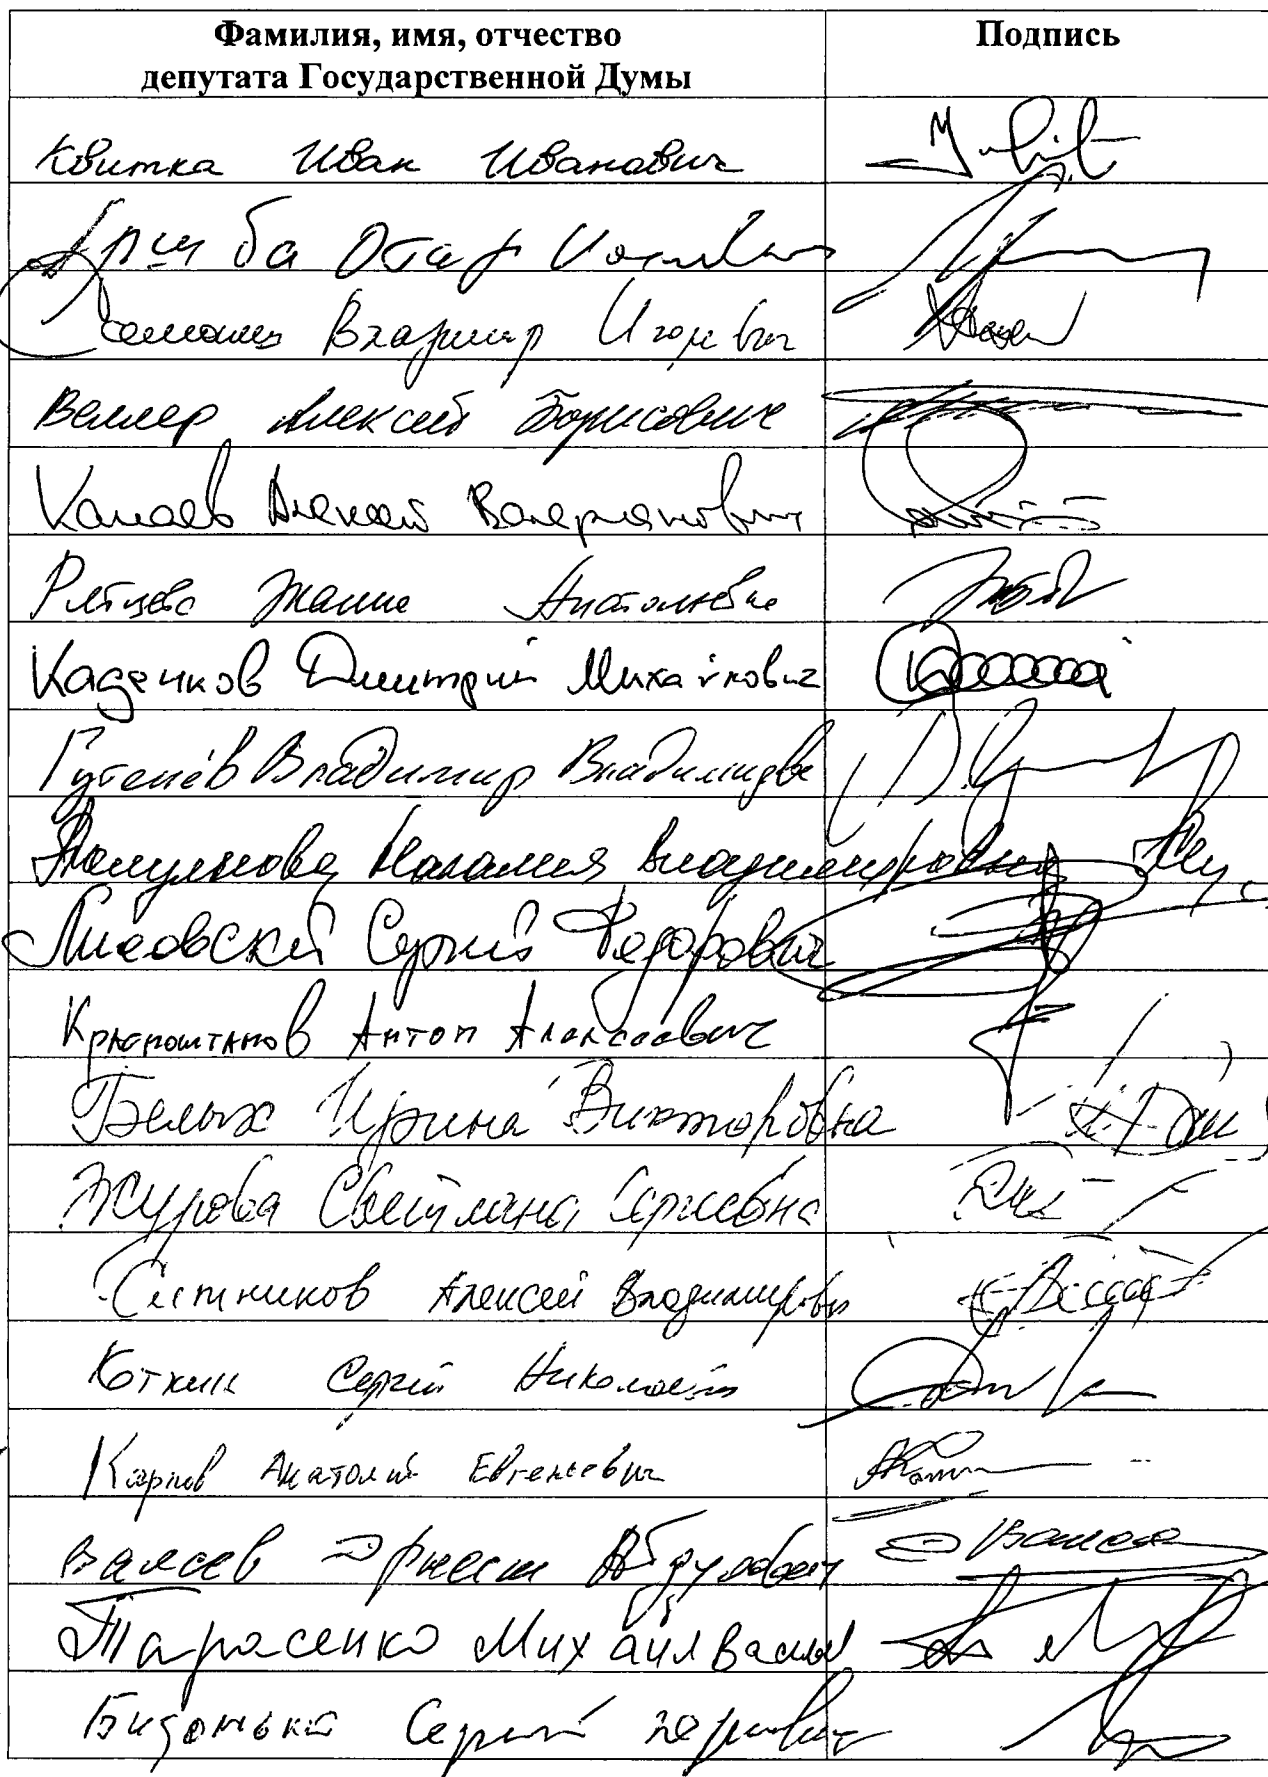 Фамилия, имя, отчество Подпись
депутата Государственной Думы
Квитка Иван Иванович
Аршба Отар Ионович
Владимир Игоревич
Веллер Алексей Борисович
Канаев Алексей Валерианович
Рябцева Жанна Анатольевна
Каденков Дмитрий Михайлович
Гутенёв Владимир Владимирович
Полуянова Наталия Владимировна
Лисовский Сергей Федорович
Антон Алексеевич
Белых Ирина Викторовна
Журова Светлана Сергеевна
Ситников Алексей Владимирович
Коткин Сергей Николаевич
Карпов Анатолий Евгеньевич
Валеев Эрнест Абдулович
Тарасенко Михаил Васил
Бидонько Сергей Юрьевич